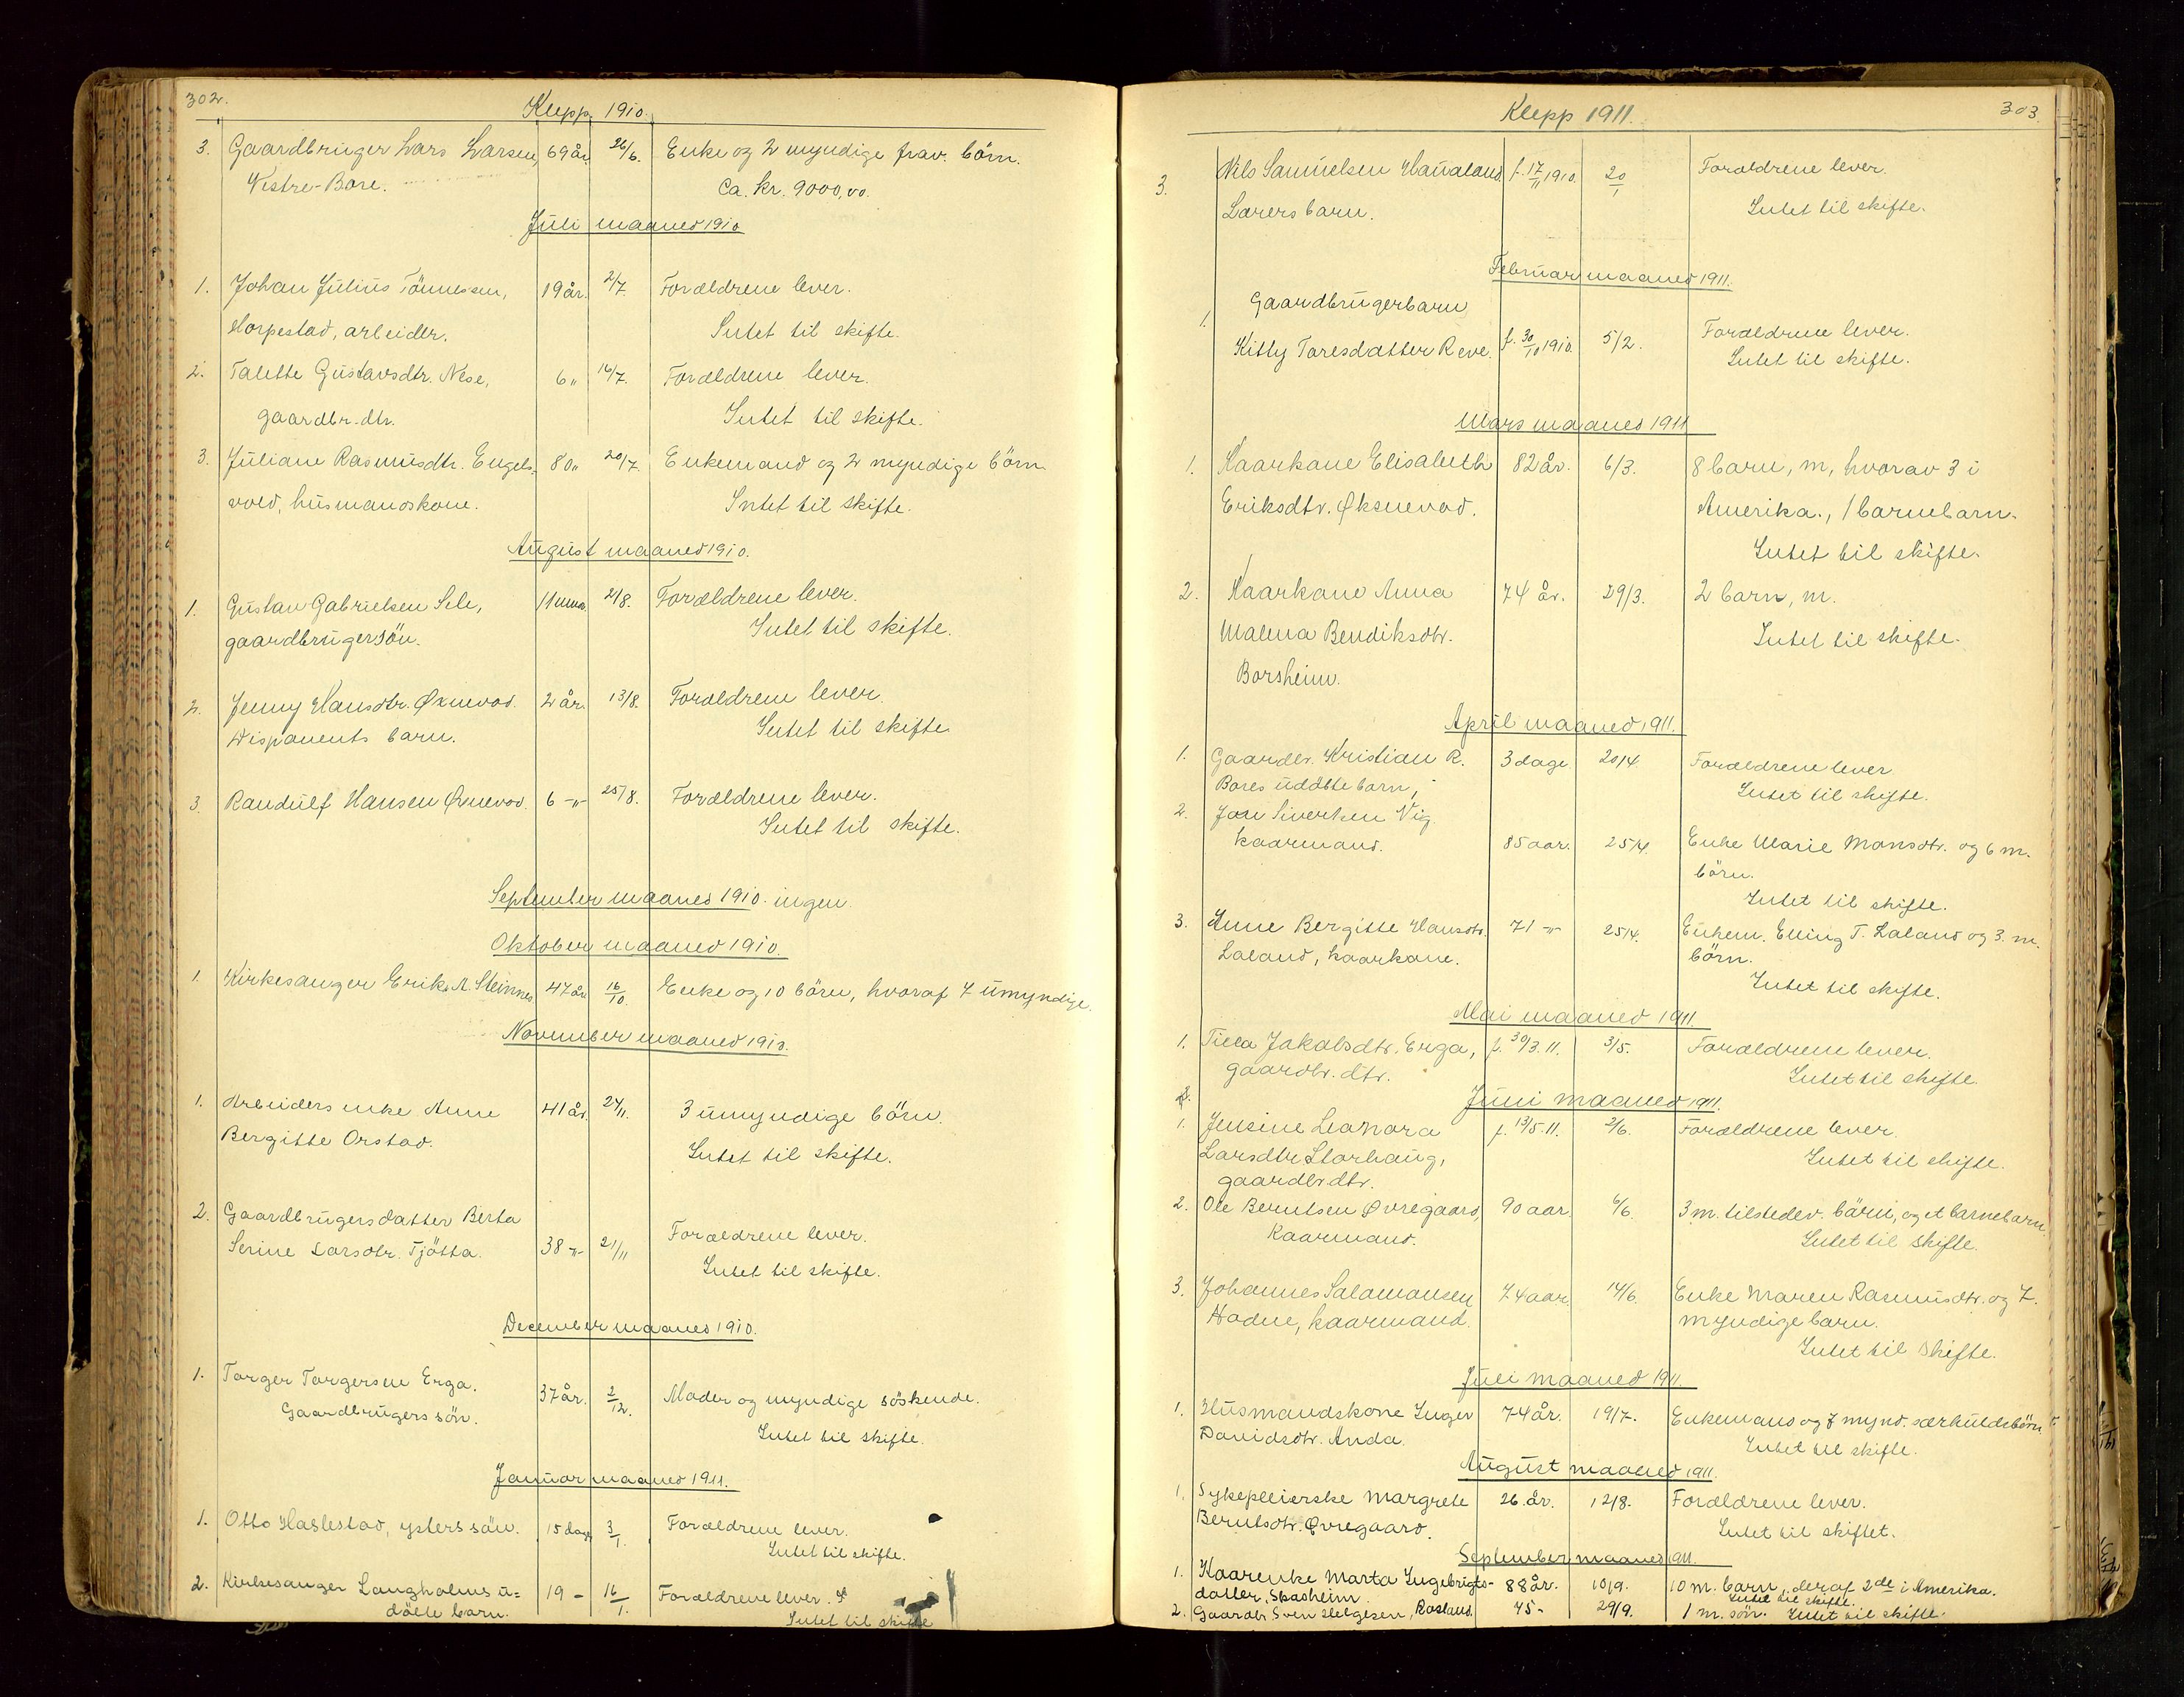 302.
Klepp 1910.
3. Gaardbruger Lars Larsen, 69 år. 26/6. Enke og 2 myndige frav. börn.
Vestre-Bore. Ca. kr. 9000,00.
Juli maaned 1910
1. Johan Julius Tönnesen, 19 år. 2/7. Forældrene lever.
Horpestad, arbeider. Intet til skifte.
2. Talette Gustavsdtr. Nese, 6 " 16/7. Forældrene lever.
gaardbr.dtr. Intet til skifte.
3. Juliane Rasmusdtr. Engels- 80 " 20/7. Enkemand og 2 myndige börn.
vold, husmandskone. Intet til skifte.
August maaned 1910.
1. Gustav Gabrielsen Sele, 11 mna. 2/8. Forældrene lever.
gaardbrugersön. Intet til skifte.
2. Jenny Hansdtr. Øxnevad. 2 år. 13/8. Forældrene lever.
Disponents barn. Intet til skifte.
3. Randulf Hansen Øxnevad. 6 -"- 25/8. Forældrene lever.
Intet til skifte.
September maaned 1910. ingen.
Oktober maaned 1910.
1. Kirkesanger Erik A. Steinnes 47 år 16/10. Enke og 10 börn, hvoraf 7 umyndige.
November maaned 1910.
1. Arbeiders enke Anne 41 år. 24/11. 3 umyndige börn.
Bergitte Orstad. Intet til skifte.
2. Gaardbrugersdatter Berta
Serine Larsdtr. Tjötta. 38 -"- 21/11 Forældrene lever.
Intet til skifte.
December maaned 1910.
1. Torger Torgersen Erga. 37 år. 2/12. Moder og myndige söskende.
Gaardbrugers sön. Intet til skifte.
Januar maaned 1911.
1. Otto Haslestad, ysters sön. 15 dag 3/1. Forældrene lever.
Intet til skifte.
2. Kirkesanger Langholms u= 19 - 16/1. Forældrene lever.
döbte barn. Intet til skifte
303.
Klepp 1911.
3. Nils Samuelsen Haualand. f. 17/11 1910. 20/1 Forældrene lever.
Lærers barn. Intet til skifte.
Februar maaned 1911.
1. Gaardbrugerbarn
Kitty Toresdatter Reve. f. 30/10 1910. 5/2. Forældrene lever.
Intet til skifte.
Mars maaned 1911
1. Kaarkone Elisabeth 82 år. 6/3. 8 barn, m, hvorav 3 i
Eriksdtr. Øksnevad. Amerika., 1 barnebarn.
Intet til skifte.
2. Kaarkone Anna 74 år. 29/3. 2 barn, m.
Malena Bendiksdtr. Intet til skifte.
Borsheim.
April maaned 1911.
1. Gaardbr. Kristian R. 3 dage 20/4. Forældrene lever
Bores udöbte barn, Intet til skifte.
2. Jon Siversen Vig.
kaarmand. 85 aar. 25/4. Enke Marie Monsdtr. og 6 m.
börn.
Intet til skifte.
3. Anne Bergitte Hansdtr. 71 -"- 25/4. Enkem. Elling T. Laland og 3. m.
Laland, kaarkone. börn.
Intet til skifte.
Mai maaned 1911.
1. Tilla Jakobsdtr. Erga, f. 30/3.11. 3/5. Forældrene lever.
gaardbr. dtr. Intet til skifte.
Juni maaned 1911.
1. Jensine Leonora f. 13/5.11. 2/6. Forældrene lever.
Larsdtr Storhaug, Intet til skifte.
gaardbrdtr.
2. Ole Berntsen Øvregaard, 90 aar. 6/6. 3 m. tilstedev. börn, og et barnebarn.
Kaarmand. Intet til skifte.
3. Johannes Salamonsen 74 aar. 14/6. Enke Maren Rasmusdtr. og 7.
Hodne, kaarmand. myndige barn.
Intet til skifte.
Juli maaned 1911.
1. Husmandskone Inger 74 år. 19/7. Enkemand og 7 mynd. særkuldsbörn
Davidsdtr. Anda. Intet til skifte.
August maaned 1911.
1. Sykepleierske Margrete 26. år. 12/8. Forældrene lever.
Berntsdtr. Øvregaard. Intet til skiftet.
September maaned 1911.
1. Kaarenke Marta Ingebrigts- 88 år. 10/9. 10 m. barn, deraf 2de i Amerika.
datter, Skasheim. Intet til skifte.
2. Gaardbr Sven Helgesen, Rosland. 75 - 29/9. 1 m. sön. Intet til skifte.